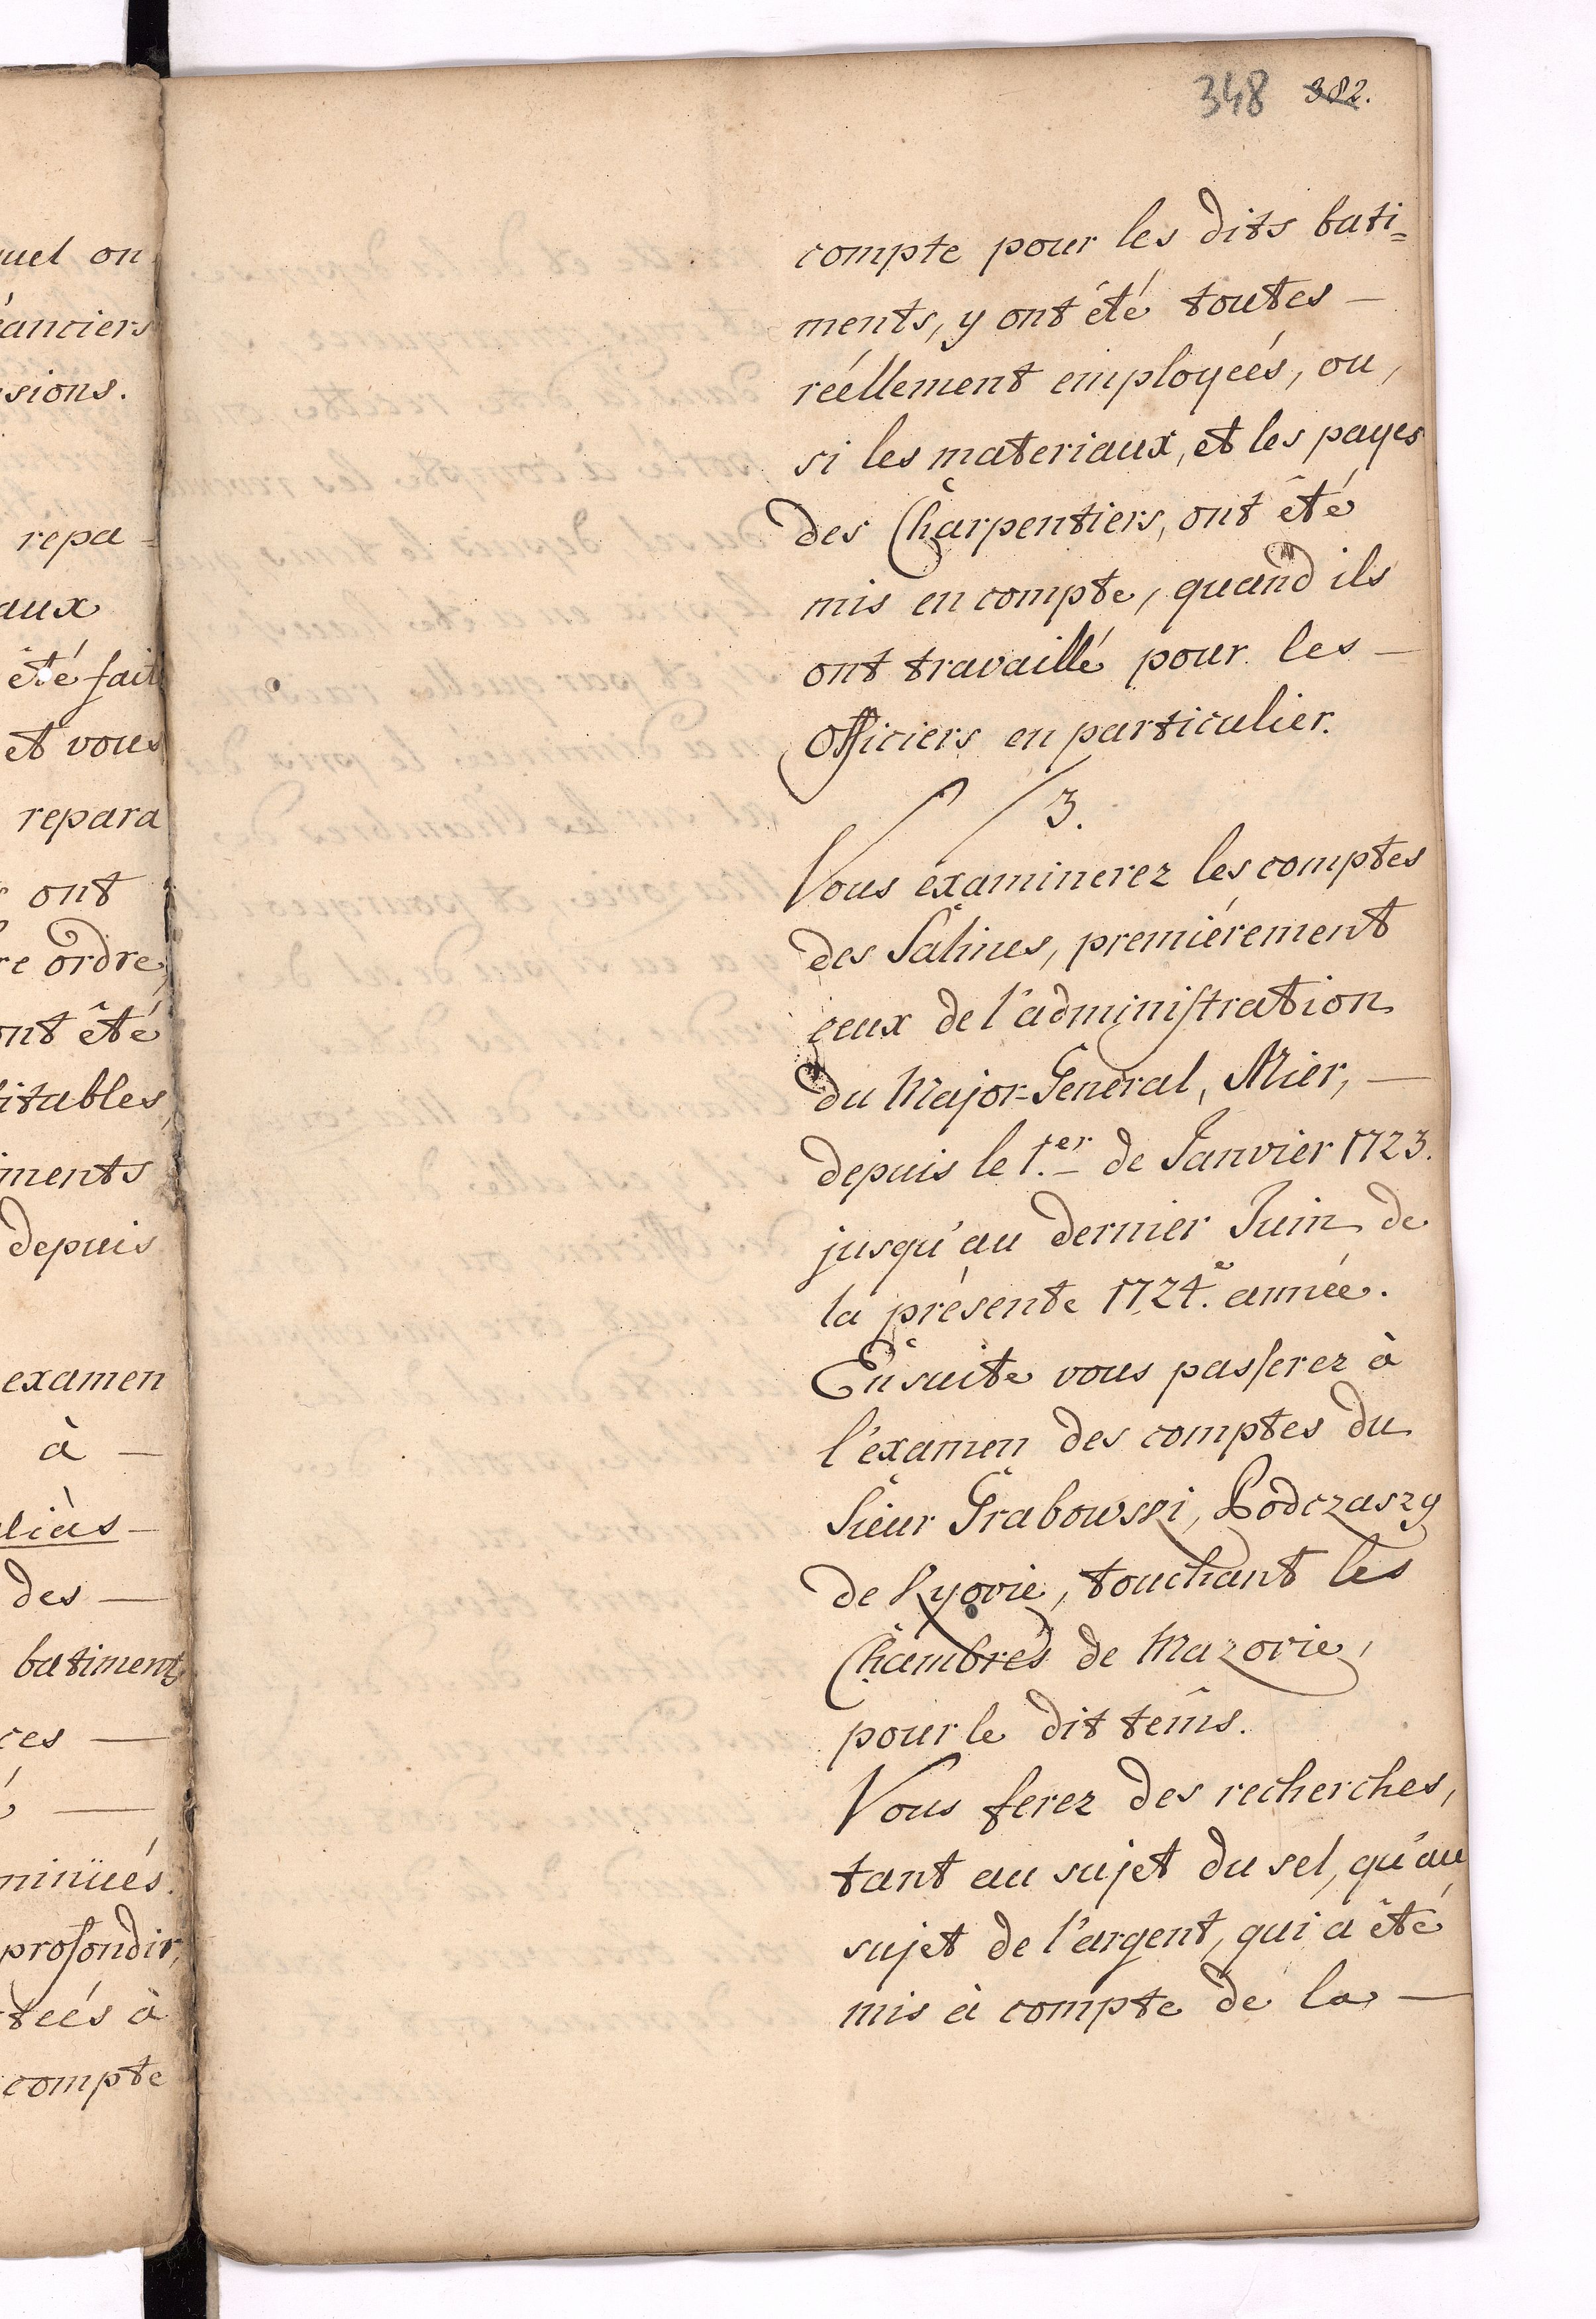 348 382.
compte pour les dits bati=
ments, y ont été toutes —
réellement employeés, ou,
si les materiaux, et les payes
des Charpentiers, ont êté
mis en compte, quand ils
ont travaillé pour les —
Officiers en particulier.
3.
Vous éxaminerez les comptes
des Salines, premiérement
ceux de l'administration
du Major-General, Mier, —
depuis le 1.er de Janvier 1723.
jusqu'au dernier Juin de
la présente 1724.e année.
Ensuite vous passerez à
l'éxamen des comptes du
Sieur Grabowski, Podczaszy
de Kyovie, touchant les
Chambres de Mazovie,
pour le dit tems.
Vous ferez des recherches,
tant au sujet du sel, qu'au
sujet de l'argent, qui a êté
mis à compte de la —
uel on
éanciers
sions.
repa-
aux
êté fait
et vous
repara
ont
re ordre,
ont êté
itables,
iments
depuis
examen
à —
aliàs —
des —
batiments
ces —
minüés.
profondir,
teés à
compte